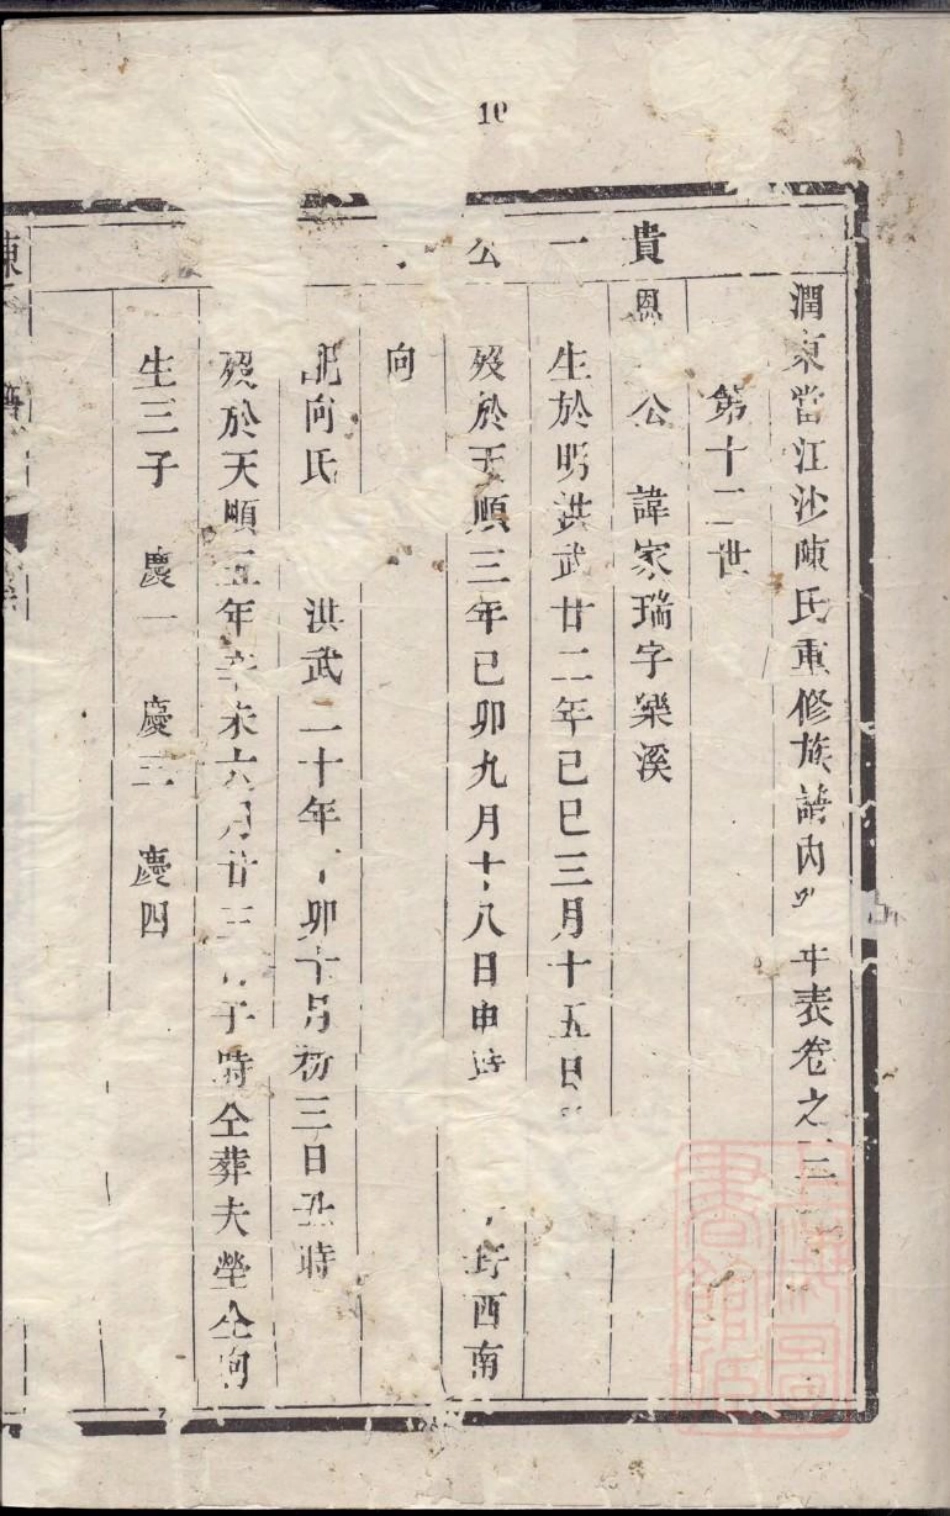 10
貴一公
潤東當江沙陳氏重修族譜內 表卷之三
第十二世
恩公 諱家瑞字樂溪
生於明洪武廿二年己巳三月十五日
歿於天順三年己卯九月十八日申時 西南
向
配向氏 洪武二十年 卯十月初三日丑時
歿於天順五年辛未六月廿三 子時仝葬夫塋仝向
生三子 慶一 慶三 慶四